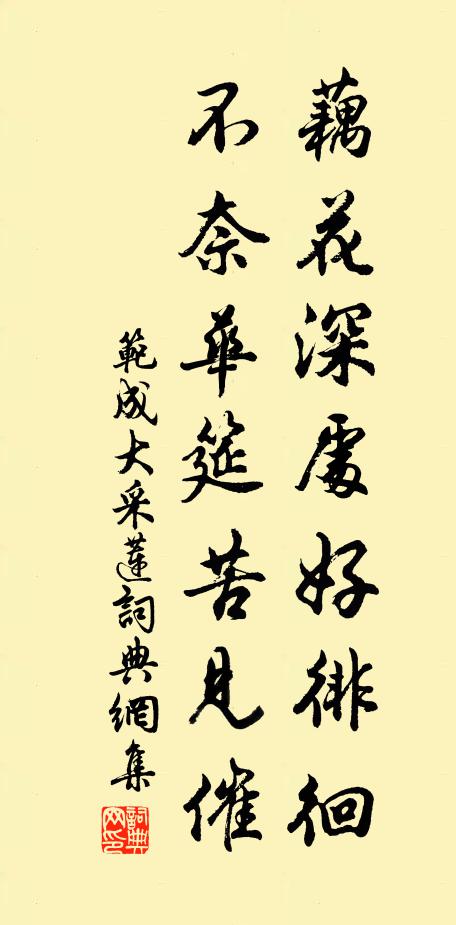 藕花深處好徘徊
不奈華筵苦見催
範成大采蓮詞典網集
詞典網印